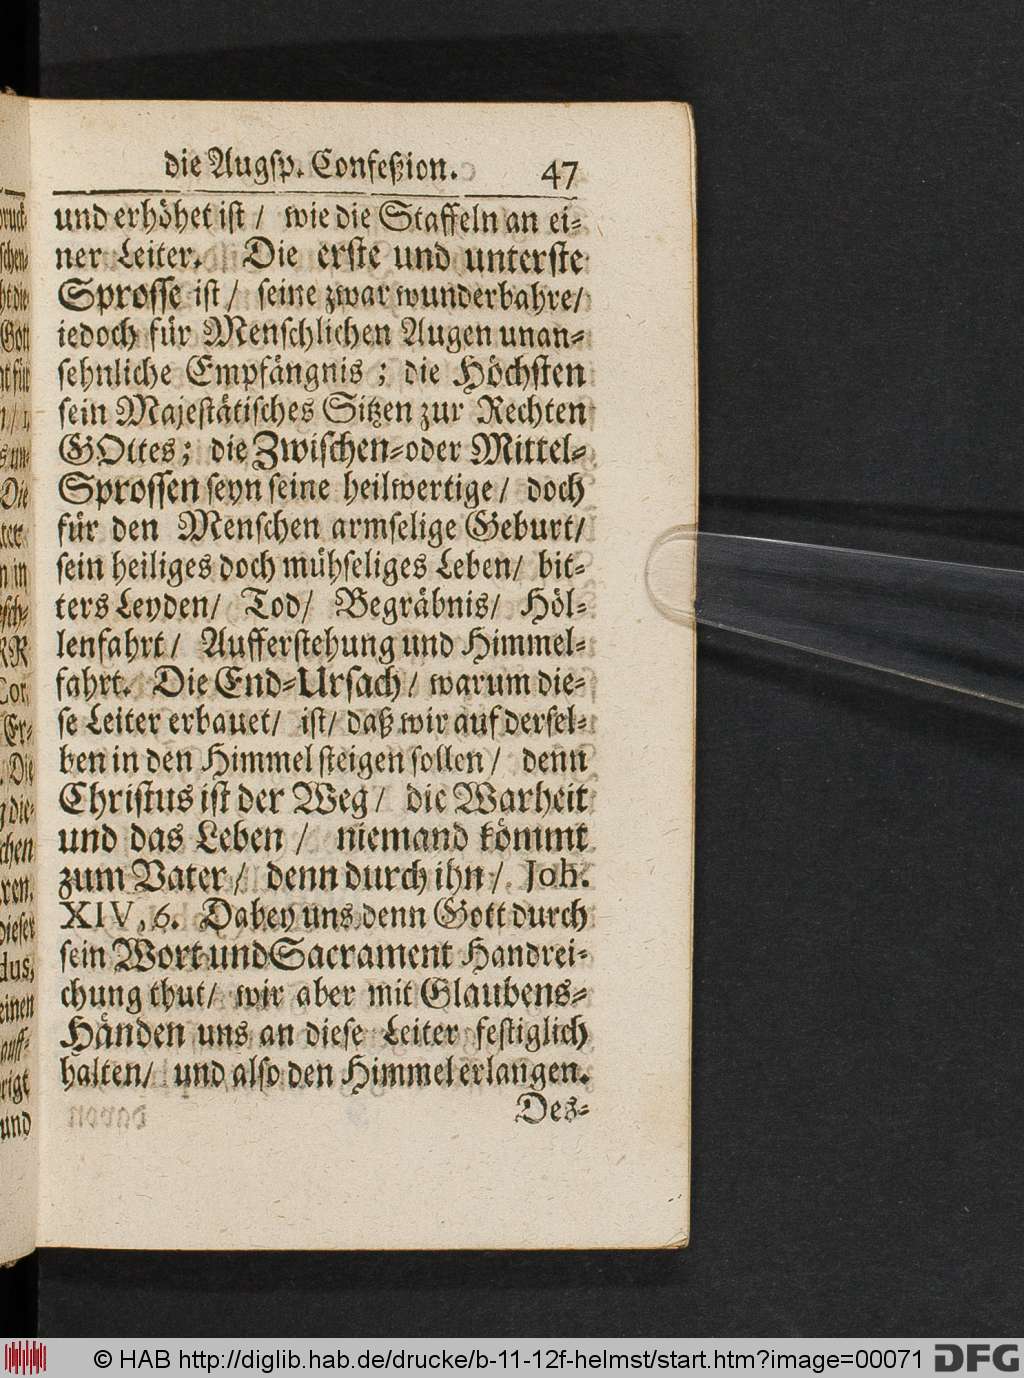 die Augsp. Confeßion. 47
und erhöhet ist / wie die Staffeln an ei-
ner Leiter. Die erste und unterste
Sprosse ist / seine zwar wunderbahre /
iedoch für Menschlichen Augen unan-
sehnliche Empfängnis ; die Höchsten
sein Majestätisches Sitzen zur Rechten
GOttes; die Zwischen- oder Mittel-
Sprossen seyn seine heilwertige / doch
für den Menschen armselige Geburt /
sein heiliges doch mühseliges Leben / bit-
ters Leyden / Tod / Begräbnis / Höl-
lenfahrt / Aufferstehung und Himmel-
fahrt. Die End-Ursach / warum die-
se Leiter erbauet / ist / daß wir auf dersel-
ben in den Himmel steigen sollen / denn
Christus ist der Weg / die Warheit
und das Leben / niemand kömmt
zum Vater / denn durch ihn / Joh.
XIV, 6. Dabey uns denn Gott durch
sein Wort und Sacrament Handrei-
chung thut / wir aber mit Glaubens-
Händen uns an diese Leiter festiglich
halten / und also den Himmel erlangen.
Des-
© HAB http://diglib.hab.de/drucke/b-11-12f-helmst/start.htm?image=00071
DFG